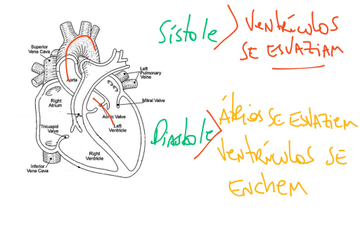 Superior
Vena Cava
Aorta
Left
Pulmonary
Veins
Right
Atrium
Mitral Valve
Tricuspid
Valve
Aortic Valve
Left
Ventricle
Right
Ventricle
Inferior
Vena Cava
Sístole
VENTRÍCULOS
SE ESVAZIAM
Diastole
ÁTRIOS SE ESVAZIEM
VENTRÍCULOS SE
ENCHEM